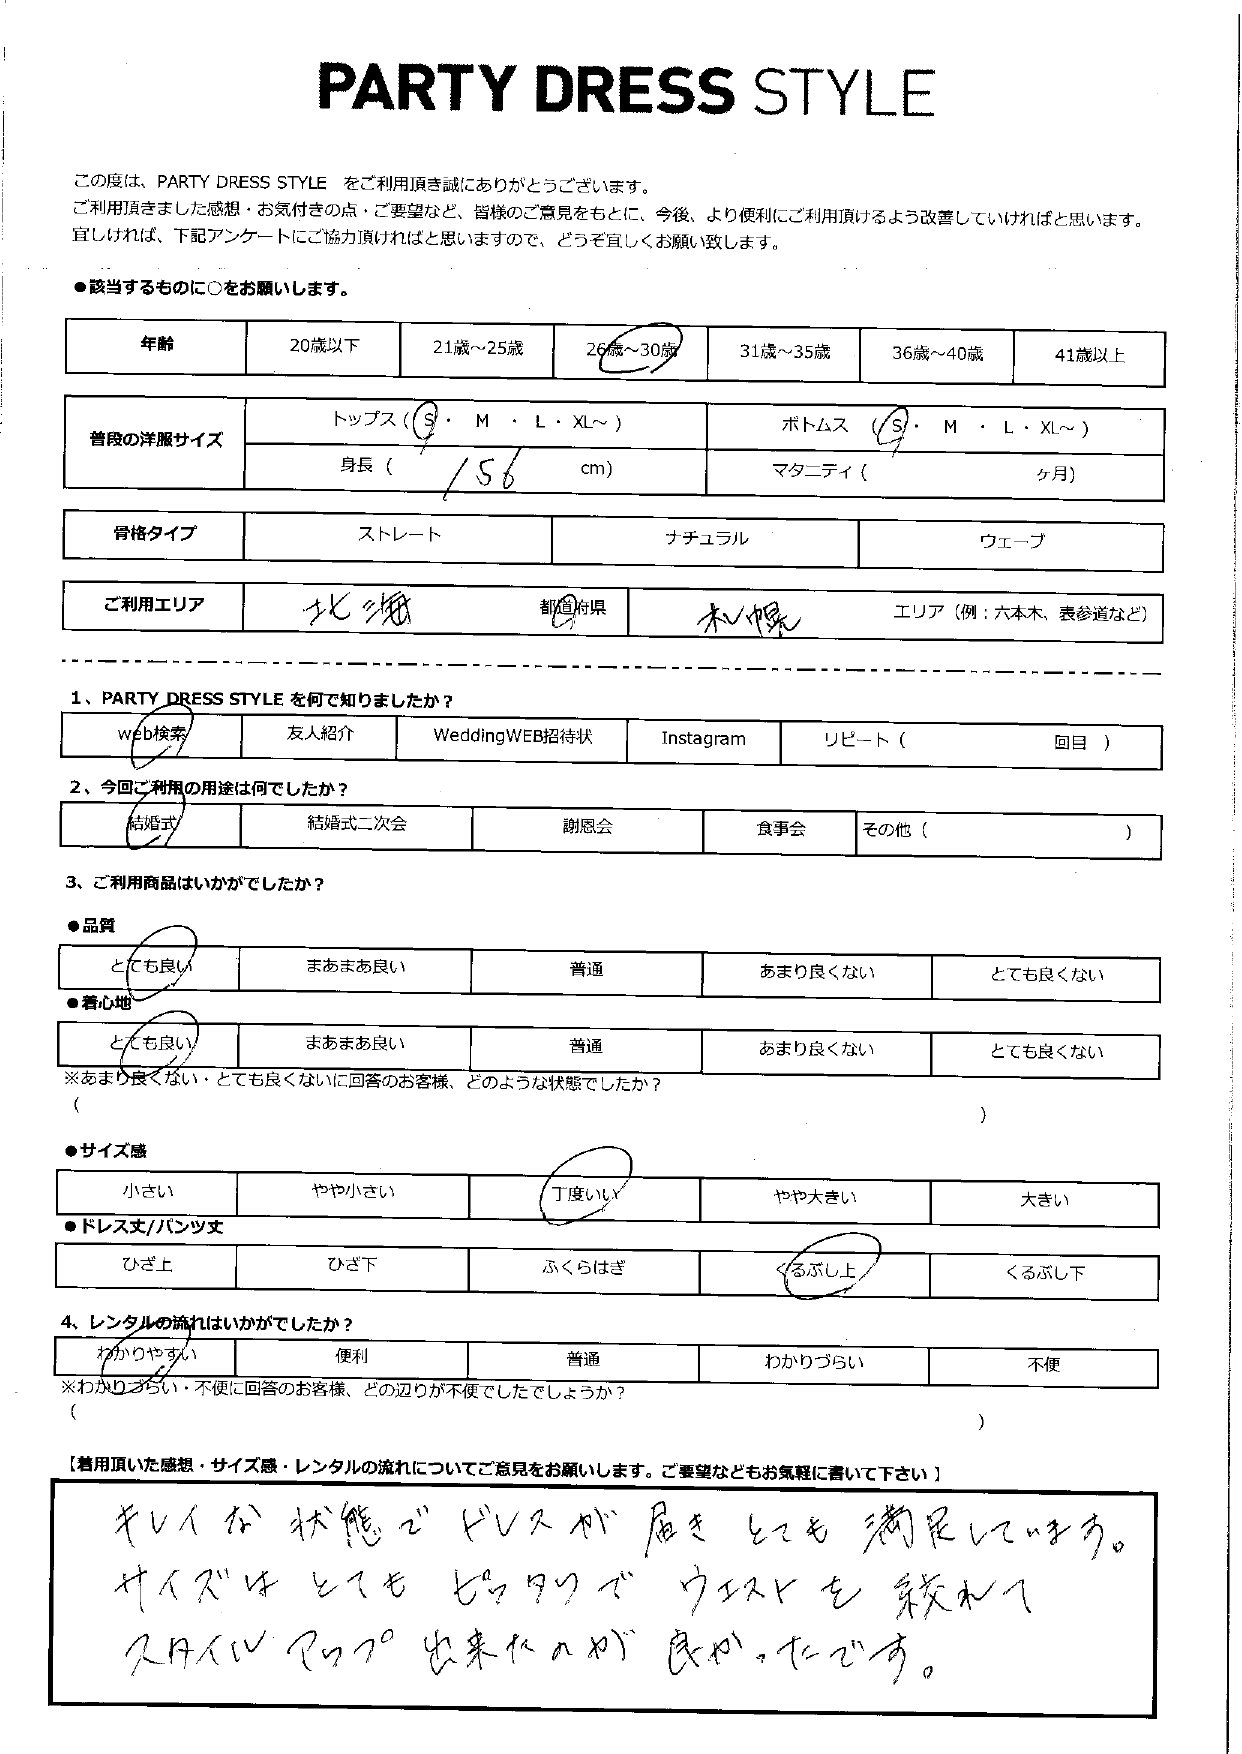 PARTY DRESS STYLE
この度は、PARTY DRESS STYLE をご利用頂き誠にありがとうございます。
ご利用頂きました感想・お気付きの点・ご要望など、皆様のご意見をもとに、今後、より便利にご利用頂けるよう改善していければと思います。
宜しければ、下記アンケートにご協力頂ければと思いますので、どうぞ宜しくお願い致します。
●該当するものに○をお願いします。
年齢 20歳以下 21歳～25歳 26歳～30歳 31歳～35歳 36歳～40歳 41歳以上
普段の洋服サイズ トップス ( S ・ M ・ L ・ XL～ ) ボトムス ( S ・ M ・ L ・ XL～ )
身長 ( 156 cm) マタニティ ( ヶ月)
骨格タイプ ストレート ナチュラル ウェーブ
ご利用エリア 北海 都道府県 札幌 エリア（例：六本木、表参道など）
1、PARTY DRESS STYLE を何で知りましたか？
web検索 友人紹介 WeddingWEB招待状 Instagram リピート（ 回目 ）
2、今回ご利用の用途は何でしたか？
結婚式 結婚式二次会 謝恩会 食事会 その他（ ）
3、ご利用商品はいかがでしたか？
●品質
とても良い まあまあ良い 普通 あまり良くない とても良くない
●着心地
とても良い まあまあ良い 普通 あまり良くない とても良くない
※あまり良くない・とても良くないに回答のお客様、どのような状態でしたか？
( )
●サイズ感
小さい やや小さい 丁度いい やや大きい 大きい
●ドレス丈/パンツ丈
ひざ上 ひざ下 ふくらはぎ くるぶし上 くるぶし下
4、レンタルの流れはいかがでしたか？
わかりやすい 便利 普通 わかりづらい 不便
※わかりづらい・不便に回答のお客様、どの辺りが不便でしたでしょうか？
( )
【着用頂いた感想・サイズ感・レンタルの流れについてご意見をお願いします。ご要望などもお気軽に書いて下さい 】
キレイな状態でドレスが届きとても満足しています。
サイズはとてもピッタリでウエストを絞れて
スタイルアップ出来たのが良かったです。